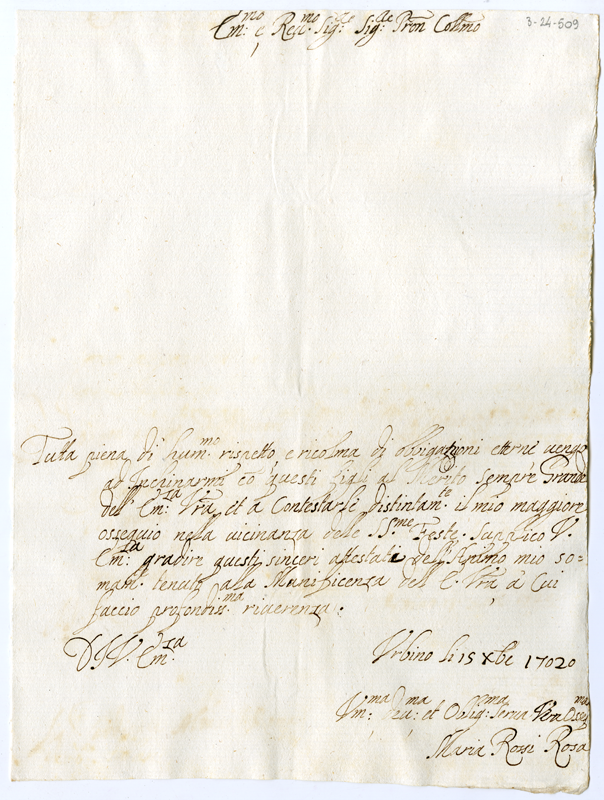 3-24-509
Em:mo e Reu:mo Sig:re Sig:re Pron Coll:mo
Tutta piena di hum:mo rispetto e ricolma di obbligationi etterne uengo
ad Inchinarmi co questi figli al Merito sempre Grande
dell' Em:za Vra, et a Contestarle distintam:te il mio maggiore
ossequio nella uicinanza delle SS:me Feste. Supplico V.
Em:za gradire questi sinceri attestati dell'Animo mio so-
mam:te tenuto alla Munificenza dell' E: Vra à Cui
faccio profondis:ma riuerenza.
D: V. Em:za
Vrbino li 15 Xbe 17020
Vm:ma et Oblig:ma Serua Oss:ma
Maria Rossi Rosa